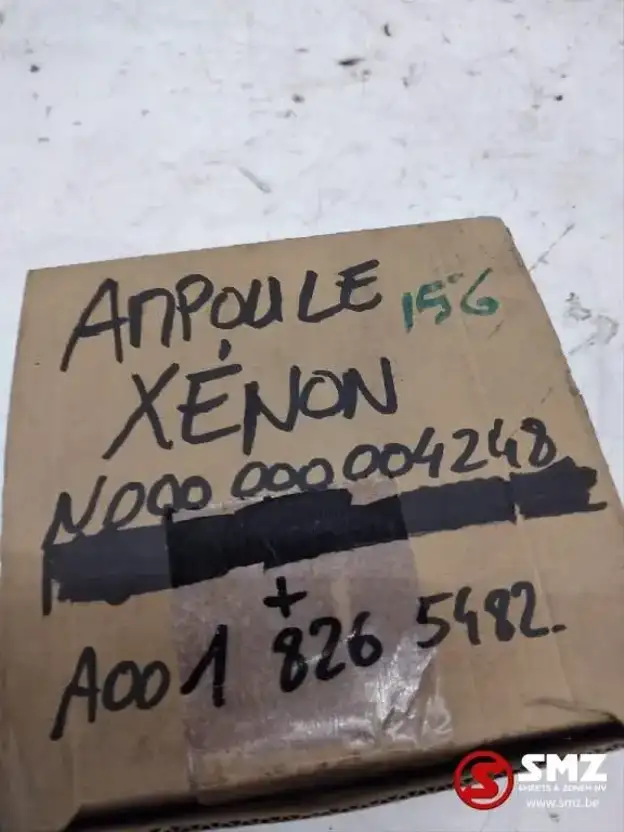 AMPOULE 156
XÉNON
N000 000 004248
+
A001 826 5482
SMZ
SMEETS & ZONEN NV
www.smz.be